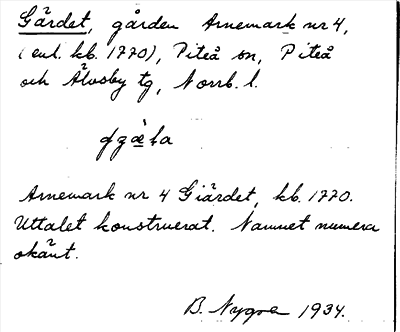 Gärdet, gården Arnemark nr 4,
(enl. kb. 1770), Piteå sn, Piteå
och Älvsby tg, Norrb. l.
Arnemark nr 4 Giärdet, kb. 1770.
Uttalet konstruerat. Namnet numera
okänt.
B. Nygre 1934.